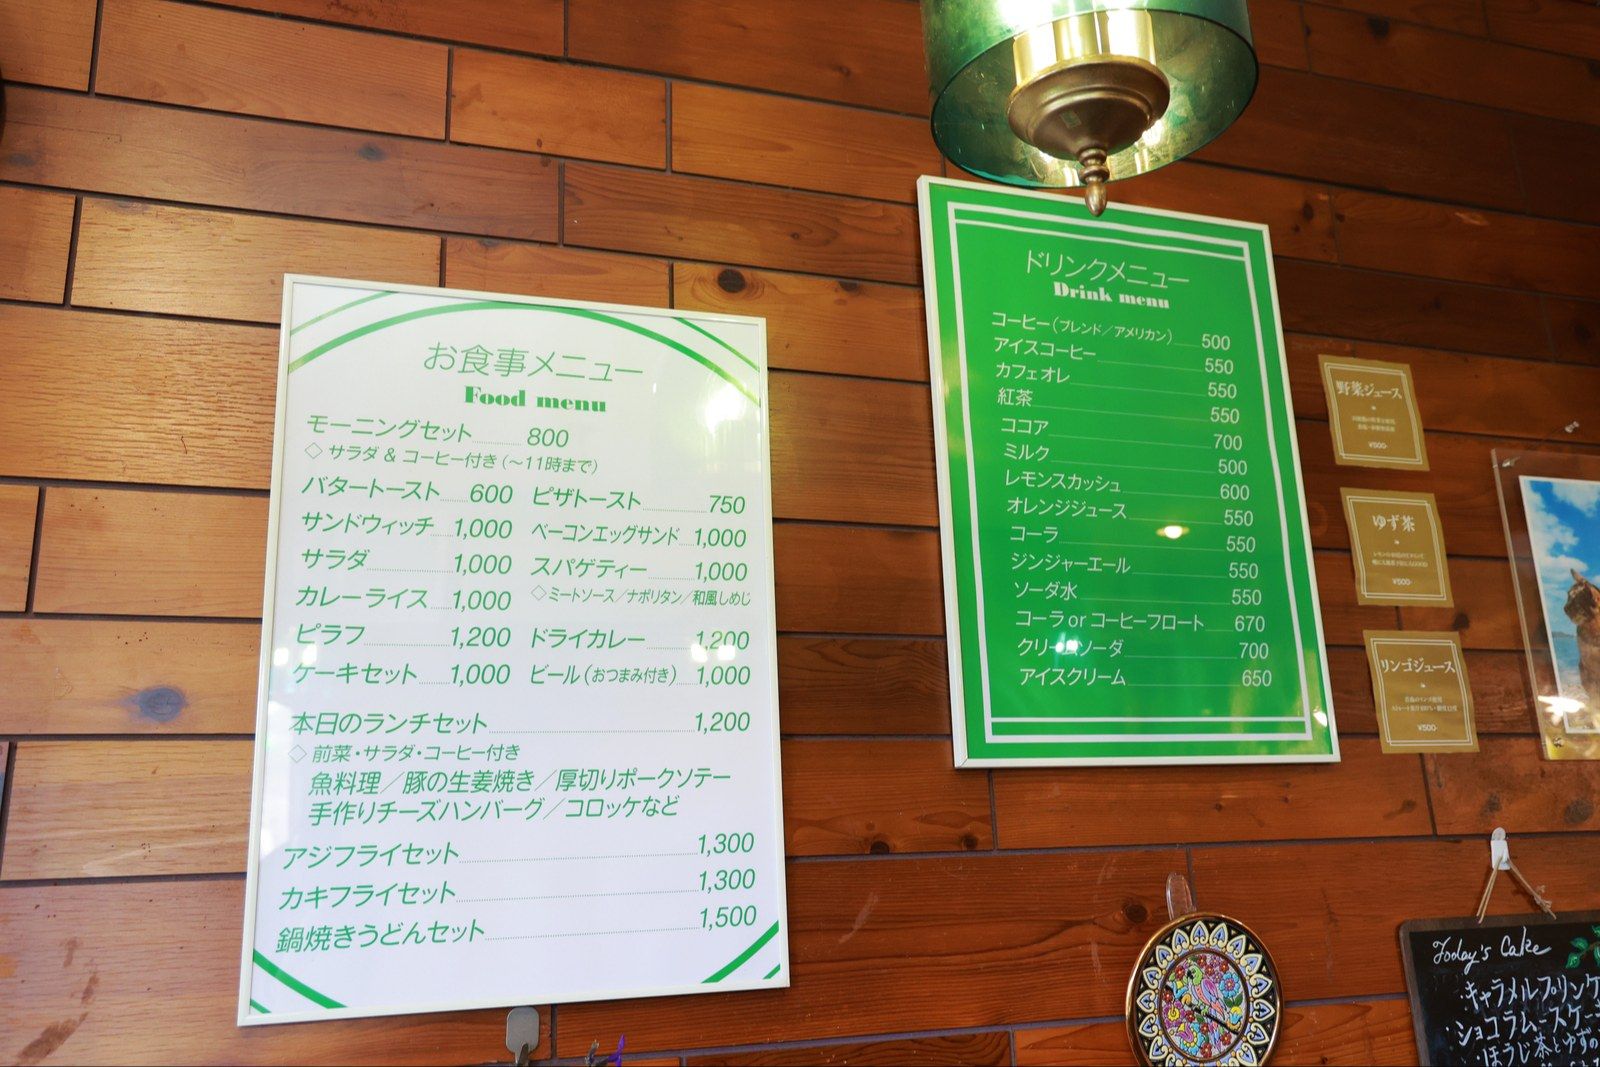 お食事メニュー
Food menu
モーニングセット 800
◇ サラダ & コーヒー付き (〜11時まで)
バタートースト 600 ピザトースト 750
サンドウィッチ 1,000 ベーコンエッグサンド 1,000
サラダ 1,000 スパゲティー 1,000
カレーライス 1,000 ◇ミートソース/ナポリタン/和風しめじ
ピラフ 1,200 ドライカレー 1,200
ケーキセット 1,000 ビール(おつまみ付き) 1,000
本日のランチセット 1,200
◇ 前菜・サラダ・コーヒー付き
魚料理/豚の生姜焼き/厚切りポークソテー
手作りチーズハンバーグ/コロッケなど
アジフライセット 1,300
カキフライセット 1,300
鍋焼きうどんセット 1,500
ドリンクメニュー
Drink menu
コーヒー(ブレンド/アメリカン) 500
アイスコーヒー 550
カフェオレ 550
紅茶 550
ココア 700
ミルク 500
レモンスカッシュ 600
オレンジジュース 550
コーラ 550
ジンジャーエール 550
ソーダ水 550
コーラ or コーヒーフロート 670
クリームソーダ 700
アイスクリーム 650
野菜ジュース
¥500-
ゆず茶
¥500-
リンゴジュース
¥500-
Today's Cake
・キャラメルプリンケ
・ショコラムースケー
・ほうじ茶とゆずの